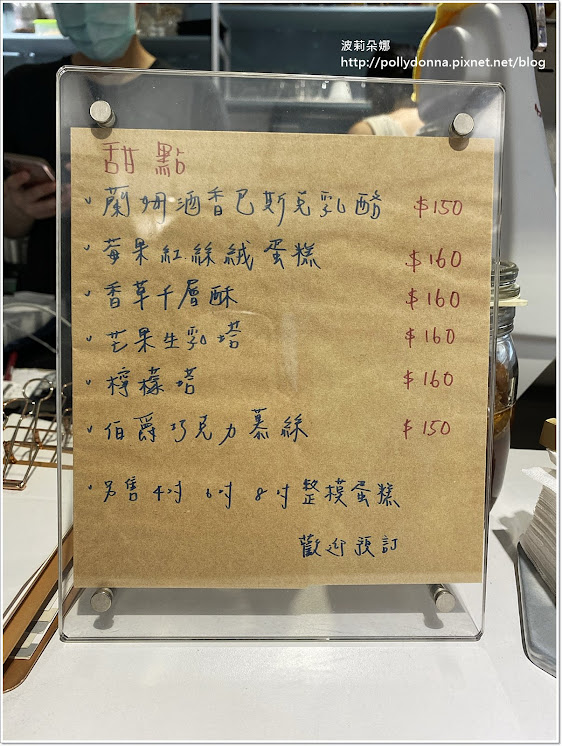 波莉朵娜
http://pollydonna.pixnet.net/blog
甜點
蘭姆酒香巴斯克乳酪 $150
莓果紅絲絨蛋糕 $160
香草千層酥 $160
芒果生乳塔 $160
檸檬塔 $160
伯爵巧克力慕絲 $150
·另售 4吋 6吋 8吋 整模蛋糕
歡迎預訂